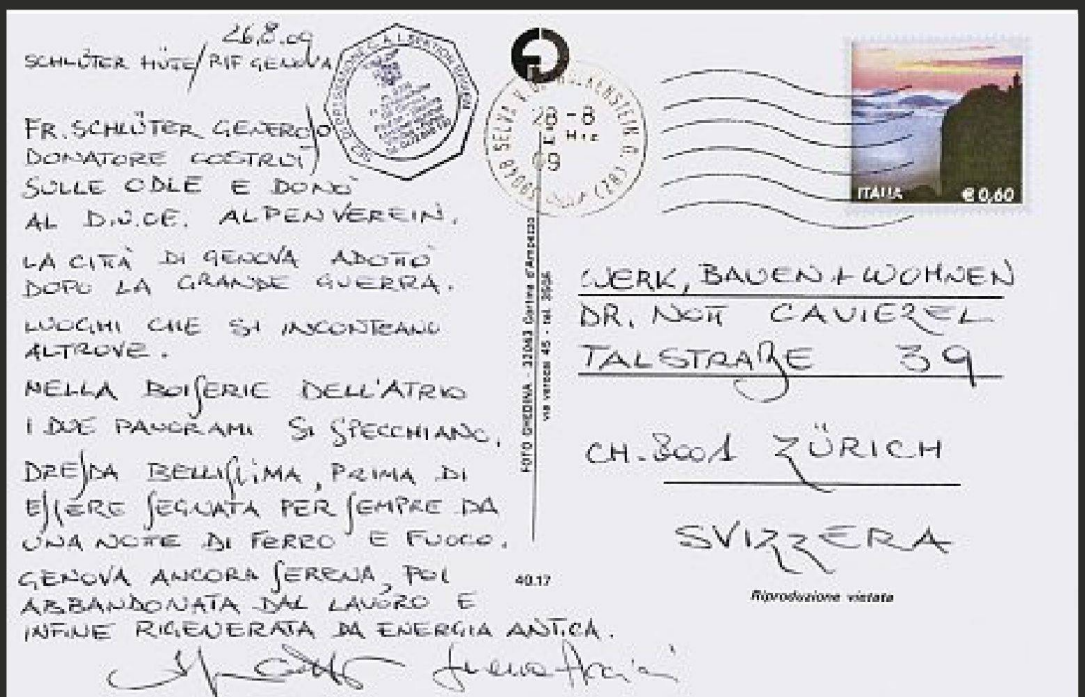 26.8.09
SCHLÜTER HÜTE/RIF GENOVA
FR. SCHLÜTER GENEROSO
DONATORE COSTRUÌ
SULLE ODLE E DONÒ
AL D.U.OE. ALPENVEREIN.
LA CITTÀ DI GENOVA ADOTTÒ
DOPO LA GRANDE GUERRA.
LUOGHI CHE SI INCONTRANO
ALTROVE.
NELLA BOISERIE DELL'ATRIO
I DUE PANORAMI SI SPECCHIANO.
DRESDA BELLISSIMA, PRIMA DI
ESSERE SEGNATA PER SEMPRE DA
UNA NOTTE DI FERRO E FUOCO.
GENOVA ANCORA SERENA, POI
ABBANDONATA DAL LAVORO E
INFINE RIGENERATA DA ENERGIA ANTICA.
39048 SELVA
28-8
09
(BZ)
ITALIA
€ 0,60
FOTO GHEDINA - 32043 Cortina d'Ampezzo
via verocai 45 - tel. 3636
WERK, BAUEN + WOHNEN
DR. NOTT CAVIEZEL
TALSTRAßE 39
CH-8001 ZÜRICH
SVIZZERA
40.17
Riproduzione vietata